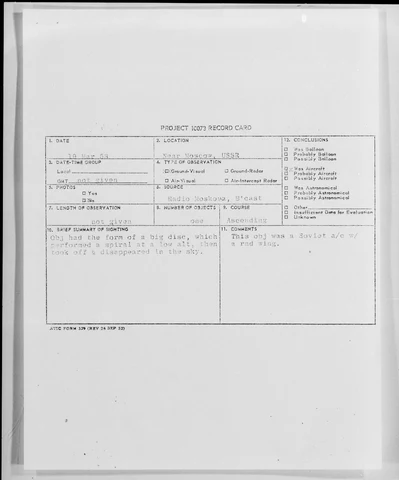 PROJECT 10073 RECORD CARD
1. DATE
2. LOCATION
Near Moscow, USSR
12. CONCLUSIONS
□ Was Balloon
□ Probably Balloon
□ Possibly Balloon
3. DATE-TIME GROUP
Local
GMT not given
4. TYPE OF OBSERVATION
Ground-Visual
□ Ground-Radar
□ Air-Visual
□ Air-Intercept Radar
Was Aircraft
□ Probably Aircraft
□ Possibly Aircraft
5. PHOTOS
□ Yes
□ No
6. SOURCE
Radio Moskowa, B'cast
□ Was Astronomical
□ Probably Astronomical
□ Possibly Astronomical
7. LENGTH OF OBSERVATION
not given
8. NUMBER OF OBJECTS
one
9. COURSE
Ascending
□ Other
□ Insufficient Data for Evaluation
□ Unknown
10. BRIEF SUMMARY OF SIGHTING
Obj had the form of a big disc, which
performed a spiral at a low alt, then
took off & disappeared in the sky.
11. COMMENTS
This obj was a Soviet a/c w/
a red wing.
ATIC FORM 329 (REV 26 SEP 52)